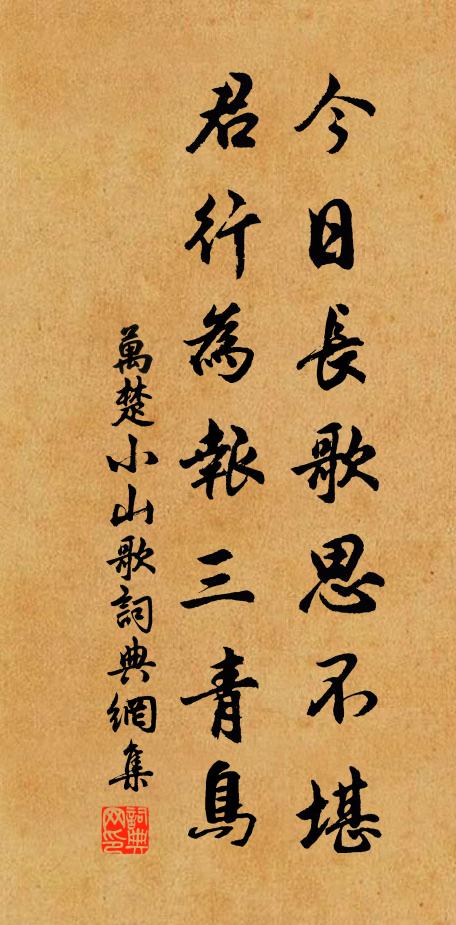 今日長歌思不堪
君行為報三青鳥
萬楚小山歌詞典網集
詞典
网印